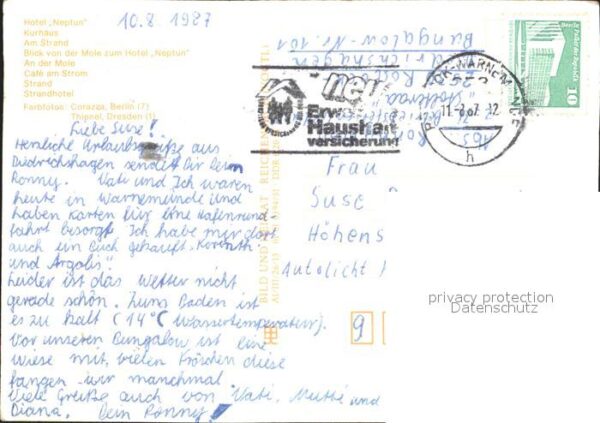 Hotel „Neptun"
Kurhäus
Am Strand
Blick von der Mole zum Hotel „Neptun"
An der Mole
Café am Strom
Strand
Strandhotel
Farbfotos: Corazza, Berlin (7)
Thignel, Dresden (1)
10.8.1987
Liebe Suse!
Herzliche Urlaubsgrüße aus
Diedrichshagen sendet Dir Dein
Ronny. Vati und Ich waren
heute in Warnemünde und
haben Karten für eine Hafenrund
fahrt besorgt. Ich habe mir dort
auch ein Buch gekauft „Korinth
und Argolis".
Leider ist das Wetter nicht
gerade schön. Zum Baden ist
es zu kalt (14°C Wassertemperatur).
Vor unseren Bungalow ist eine
Wiese mit vielen Fröschen diese
fangen wir manchmal.
Viele Grüße auch von Vati, Mutti und
Diana. Dein Ronny!
BILD UND HEIMAT REICHENBACH
neu
Erw.
Haushalt
versicherung
ROSTOCK-WARNEMÜNDE
h
10
Abs
Bungalow-Nr. 101
Diedrichshagen
Frau
Suse
Höhens
Autolicht
9
privacy protection
Datenschutz